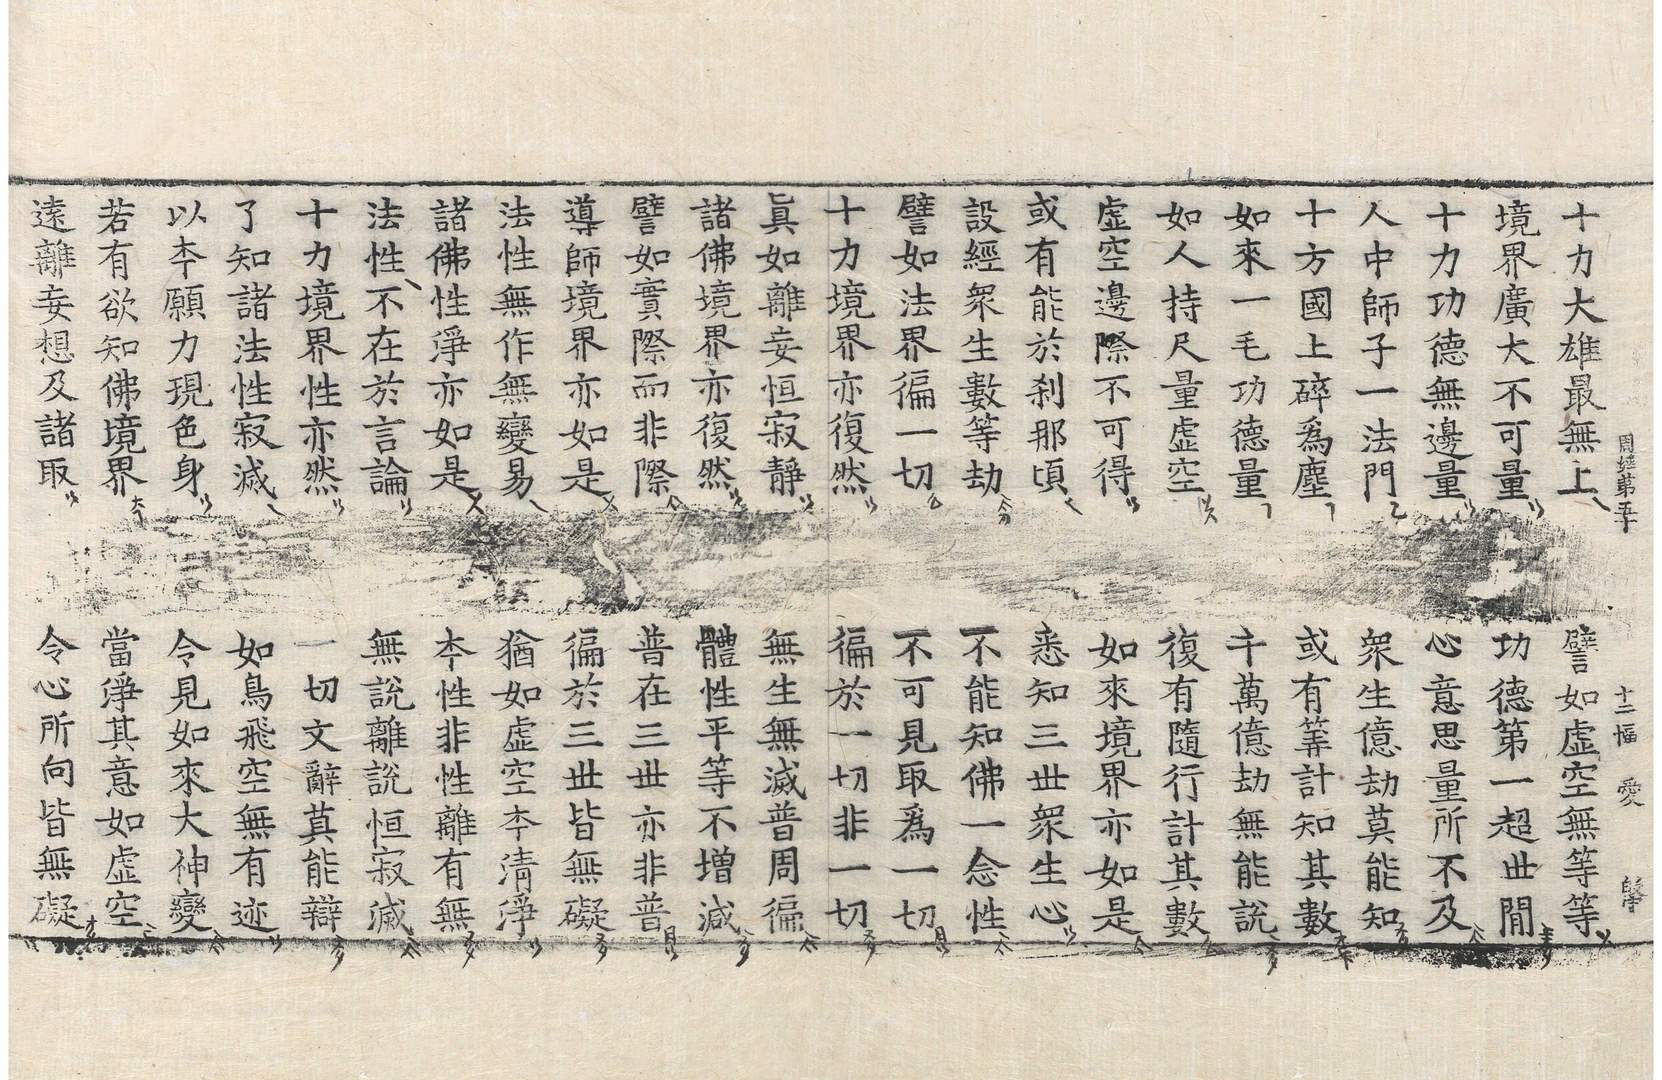 周経第五十 十二幅 愛
十力大雄最無上 譬如虛空無等等
境界廣大不可量 功德第一超世間
十力功德無邊量 心意思量所不及
人中師子一法門 衆生億劫莫能知
十方國上碎爲塵 或有筭計知其數
如來一毛功德量 千萬億劫無能說
如人持尺量虛空 復有隨行計其數
虛空邊際不可得 如來境界亦如是
或有能於刹那頃 悉知三世衆生心
設經衆生數等劫 不能知佛一念性
譬如法界徧一切 不可見取爲一切
十力境界亦復然 徧於一切非一切
眞如離妄恒寂靜 無生無滅普周徧
諸佛境界亦復然 體性平等不增減
譬如實際而非際 普在三世亦非普
導師境界亦如是 徧於三世皆無礙
法性無作無變易 猶如虛空本清淨
諸佛性淨亦如是 本性非性離有無
法性不在於言論 無說離說恒寂滅
十力境界性亦然 一切文辭莫能辯
了知諸法性寂滅 如鳥飛空無有迹
以本願力現色身 令見如來大神變
若有欲知佛境界 當淨其意如虛空
遠離妄想及諸取 令心所向皆無礙